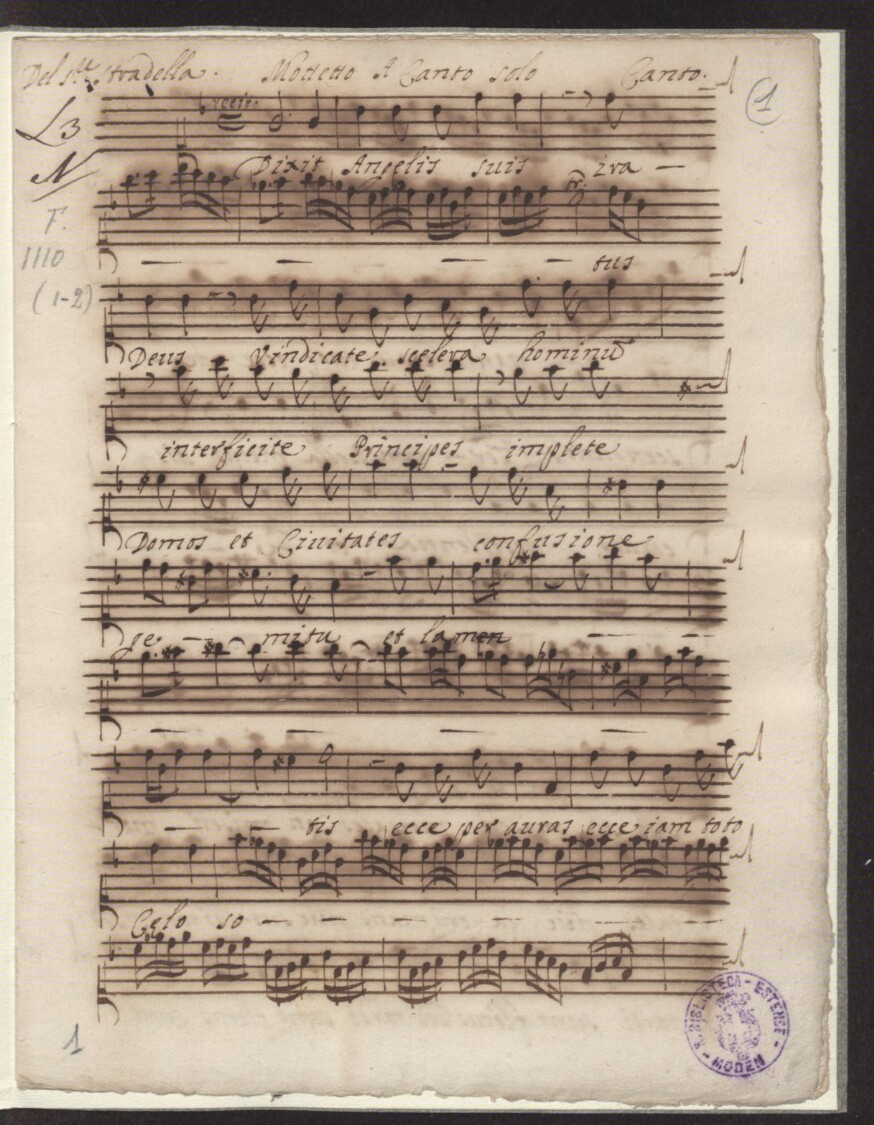 Del S.r Stradella. Mottetto A Canto solo Canto.
1
L 3
N
F.
1110
(1-2)
Dixit Angelis suis ira —
— — — — tus
Deus Vindicate scelera hominũ
interficite Principes implete
Domos et Ciuitates confusione
ge — mitu et lamen — —
— — —
— — tis ecce per auras ecce iam toto
Celo so — — — — — —
1
R. BIBLIOTECA - ESTENSE - MODEN